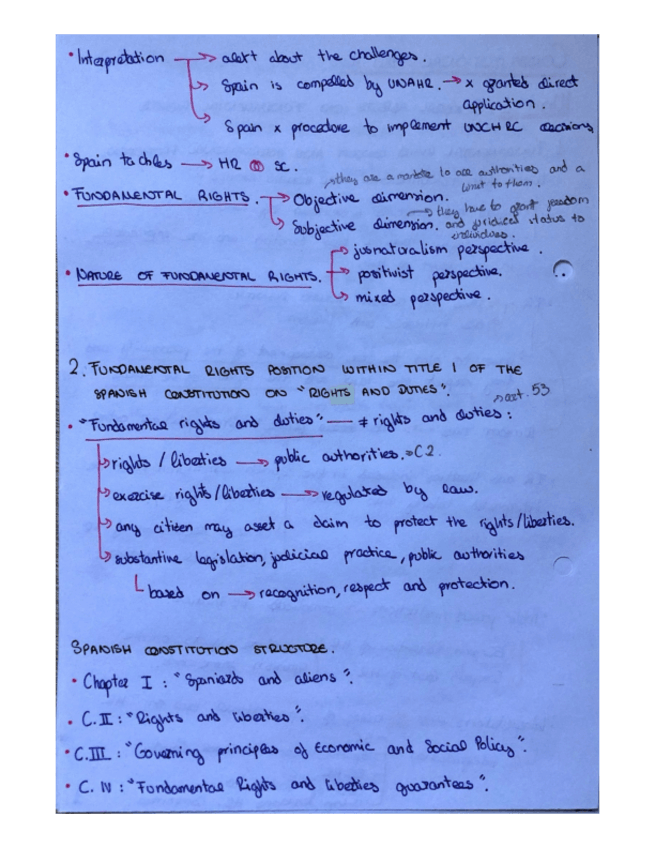 • Interpretation → alert about the challenges.
→ Spain is compelled by UNAHR. → x granted direct
application.
→ Spain x procedure to implement UNCHRC decisions
• Spain tackles → HR SC.
→ they are a mandate to all authorities and a
limit to them.
• FUNDAMENTAL RIGHTS. → Objective dimension.
→ they have to grant freedom
→ Subjective dimension. and juridical status to
individuals.
→ jusnaturalism perspective.
• NATURE OF FUNDAMENTAL RIGHTS. → positivist perspective.
→ mixed perspective.
2. FUNDAMENTAL RIGHTS POSITION WITHIN TITLE I OF THE
SPANISH CONSTITUTION ON "RIGHTS AND DUTIES". → art. 53
• "Fundamental rights and duties" — ≠ rights and duties:
→ rights / liberties → public authorities. → C2.
→ exercise rights / liberties → regulated by law.
→ any citizen may asset a claim to protect the rights / liberties.
→ substantive legislation, judicial practice, public authorities
based on → recognition, respect and protection.
SPANISH CONSTITUTION STRUCTURE.
• Chapter I : "Spaniards and aliens".
• C. II : "Rights and liberties".
• C. III : "Governing principles of Economic and Social Policy".
• C. IV : "Fundamental Rights and liberties guarantees".